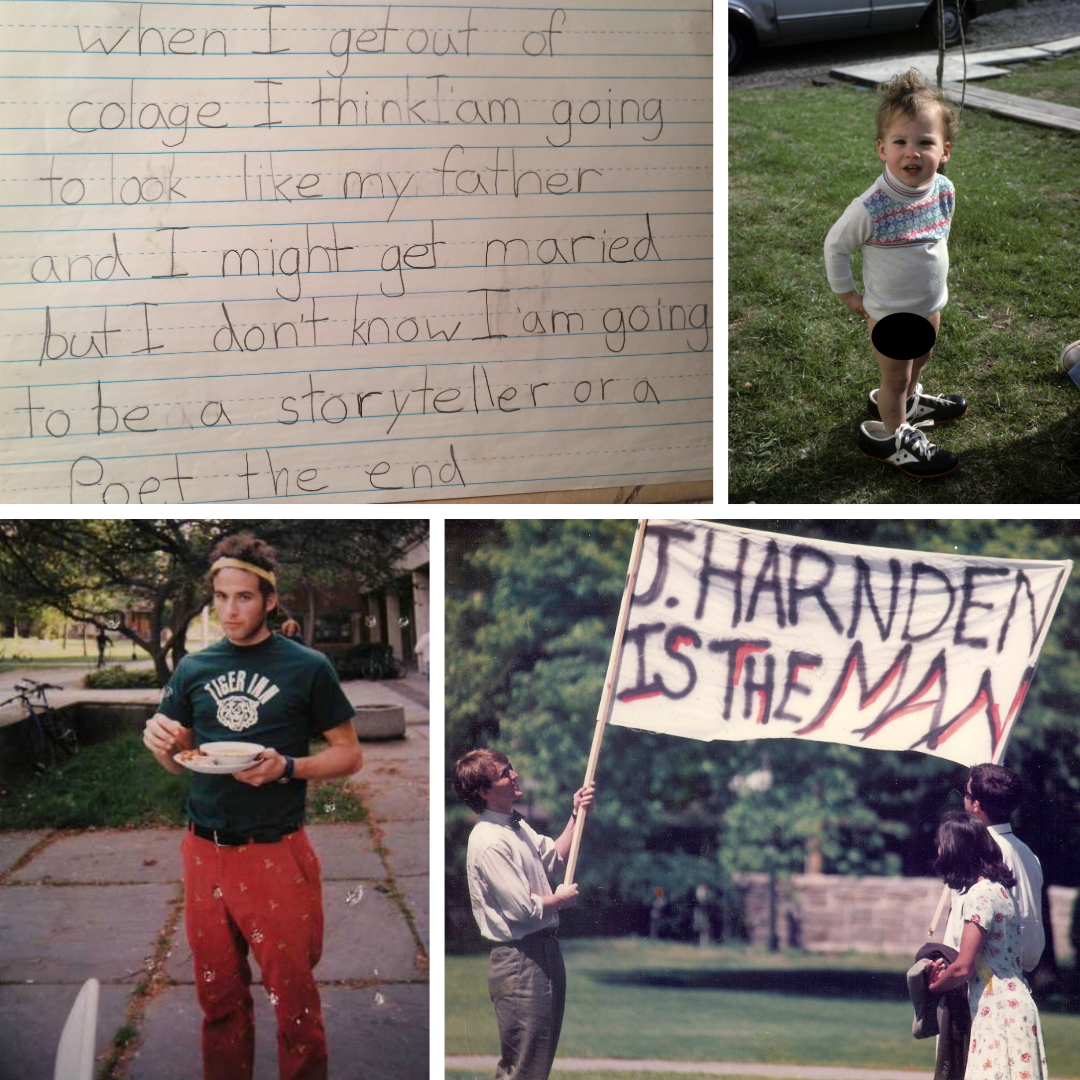 when I get out of
colage I think I'am going
to look like my father
and I might get maried
but I don't know I'am going
to be a storyteller or a
Poet the end
TIGER INN
J. HARNDEN
IS THE MAN